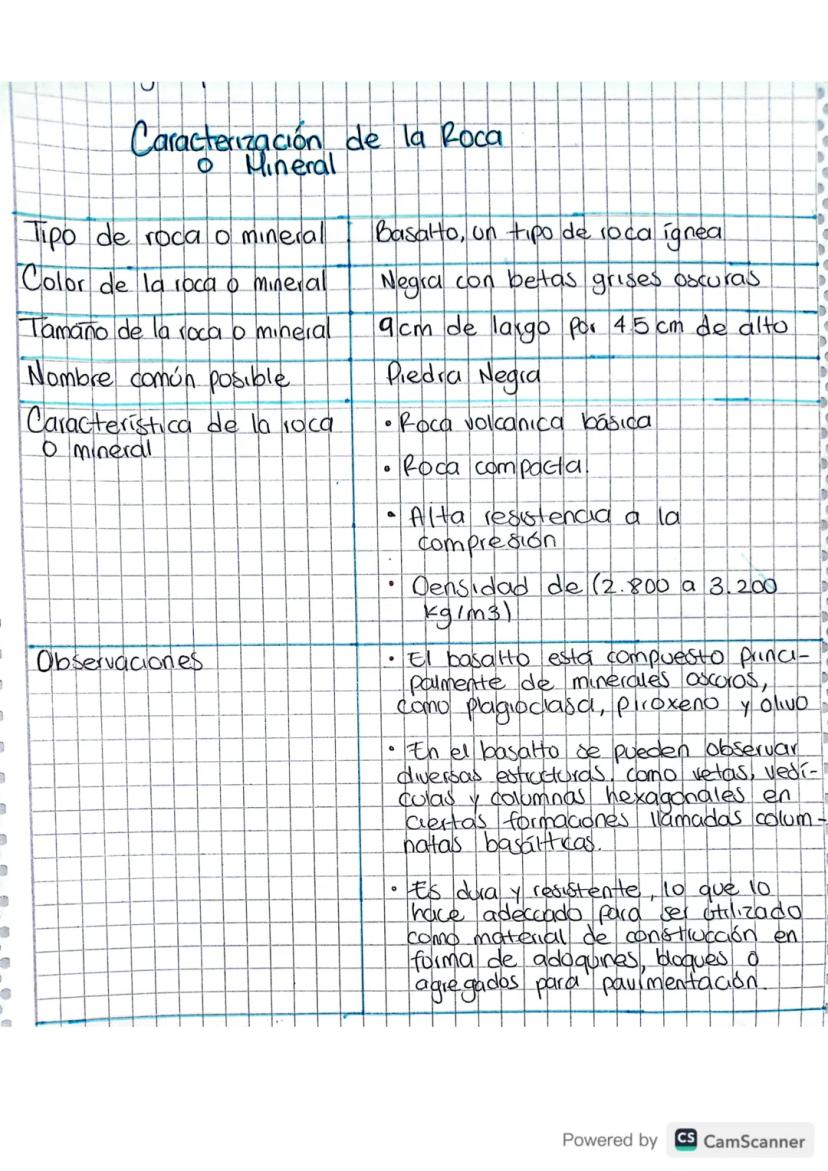 Caracterización de la Roca
o Mineral
Tipo de roca o mineral
Basalto, un tipo de roca ígnea
Color de la roca o mineral
Negra con betas grises oscuras
Tamaño de la roca o mineral
9cm de largo por 4.5 cm de alto
Nombre común posible
Piedra Negra
Característica de la roca
o mineral
• Roca volcanica básica
• Roca compacta.
• Alta resistencia a la
compresión
• Densidad de (2.800 a 3.200
kg/m3)
Observaciones
• El basalto está compuesto princi-
palmente de minerales oscuros,
como plagioclasa, piroxeno y olivo
• En el basalto se pueden observar
diversas estructuras, como vetas, vesí-
culas y columnas hexagonales en
ciertas formaciones llamadas colum-
natas basálticas.
• Es dura y resistente, lo que lo
hace adecuado para ser utilizado
como material de construcción en
forma de adoquines, bloques o
agregados para pavimentación.
Powered by CS CamScanner